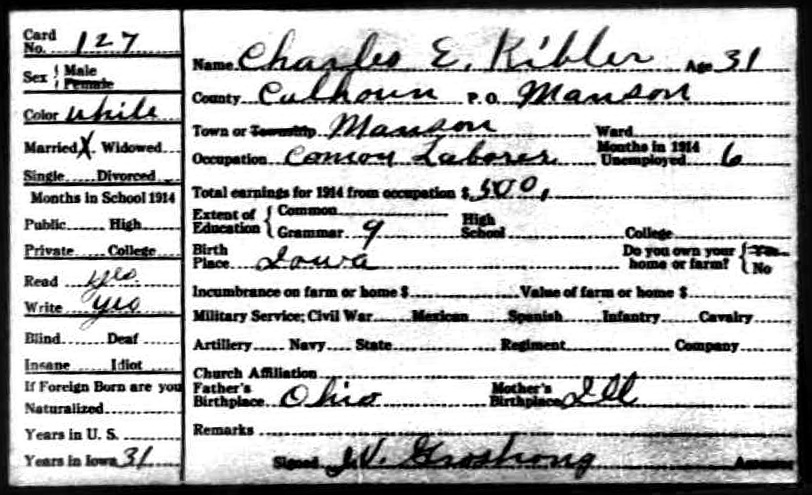 Card No. 127
Sex { Male Female
Color White
Married X Widowed
Single Divorced
Months in School 1914
Public High
Private College
Read yes
Write yes
Blind Deaf
Insane Idiot
If Foreign Born are you
Naturalized
Years in U. S.
Years in Iowa 31
Name Charles E. Kibler Age 31
County Calhoun P. O. Manson
Town or Township Manson Ward
Occupation Comon Laborer Months in 1914 Unemployed 6
Total earnings for 1914 from occupation $ 500,
Extent of Education { Common
Grammar 9 High School College
Birth Place Iowa Do you own your home or farm? { Yes No
Incumbrance on farm or home $ Value of farm or home $
Military Service; Civil War Mexican Spanish Infantry Cavalry
Artillery Navy State Regiment Company
Church Affiliation
Father's Birthplace Ohio Mother's Birthplace Ill
Remarks
Signed J.V. Groshong Assessor